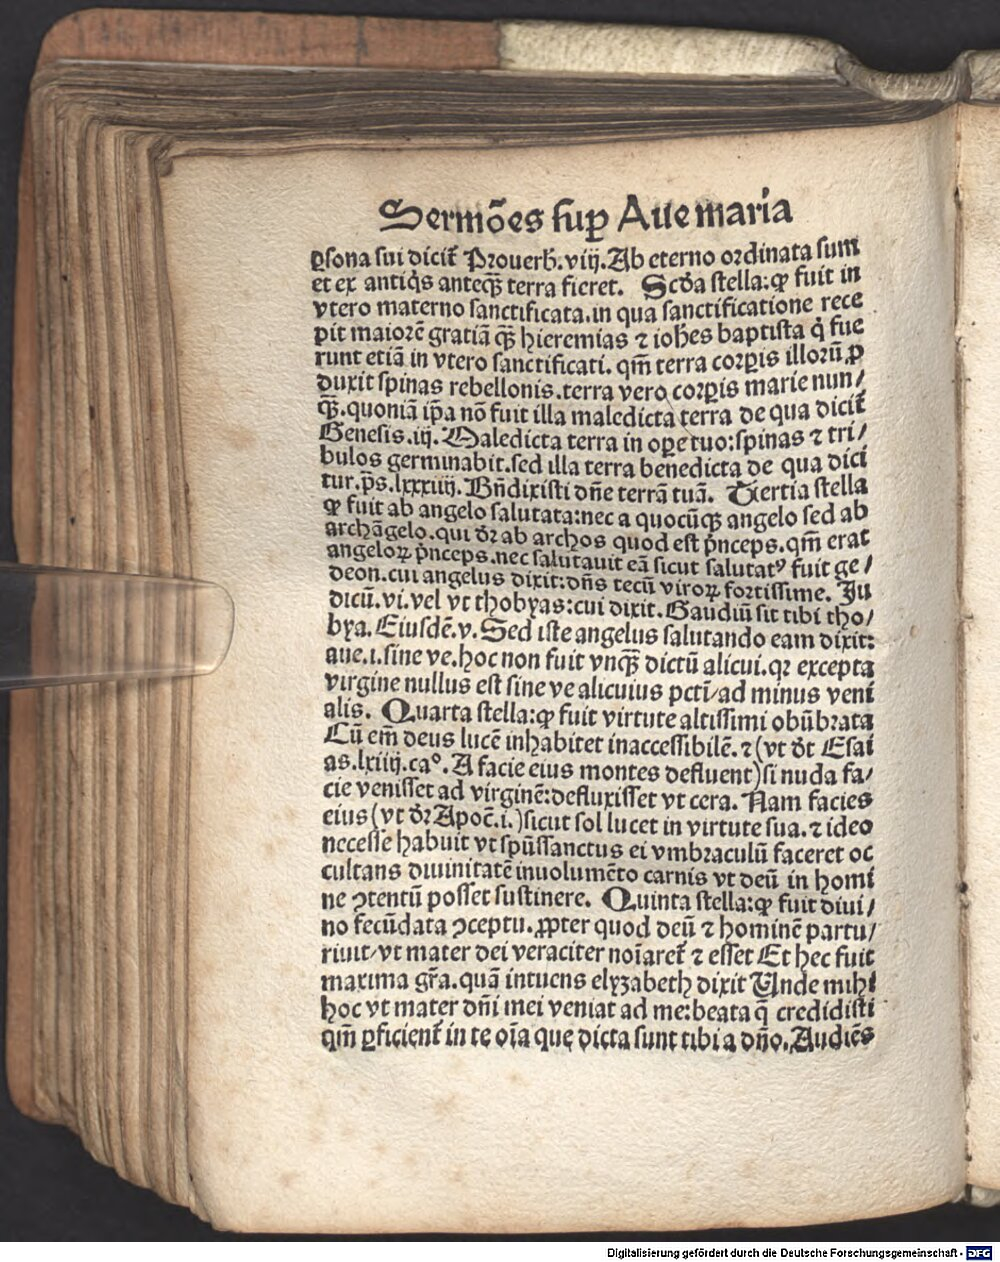 Sermões suꝑ Aue maria
ꝑsona sui dicit᷑ Prouerb̃.viij.Ab eterno ordinata sum
et ex antiq̇s anteq̃ꝫ terra fieret. Scd̃a stella:ꝙ fuit in
vtero materno sanctificata.in qua sanctificatione rece
pit maiorẽ gratiã q̃ꝫ hieremias ⁊ ioh̃es baptista q̇ fue
runt etiã in vtero sanctificati. qm̃ terra corꝑis illorũ ꝓ
duxit spinas rebellonis.terra vero corꝑis marie nun/
q̃ꝫ.quoniã ip̃a nõ fuit illa maledicta terra de qua dicit᷑
Genesis.iij.Maledicta terra in oꝑe tuo:spinas ⁊ tri/
bulos germinabit.sed illa terra benedicta de qua dici
tur.p̃s.lxxxiiij.Bñdixisti dñe terrã tuã. Tiertia stella
ꝙ fuit ab angelo salutata:nec a quocũqꝫ angelo sed ab
archãgelo.qui dr̃ ab archos quod est p̃nceps.qm̃ erat
angeloꝝ p̃nceps.nec salutauit eã sicut salutatꝰ fuit ge/
deon.cui angelus dixit:dñs tecũ viroꝝ fortissime. Iu
dicũ.vi.vel vt thobyas:cui dixit.Gaudiũ sit tibi tho/
bya.Eiusdẽ.v.Sed iste angelus salutando eam dixit:
aue.i.sine ve.hoc non fuit vnq̃ꝫ dictũ alicui.qꝛ excepta
virgine nullus est sine ve alicuius pctĩ/ad minus veni
alis. Quarta stella:ꝙ fuit virtute altissimi obũbrata
Cũ em̃ deus lucẽ inhabitet inaccessibilẽ.⁊(vt dt̃ Esai
as.lxiiij.caº.A facie eius montes defluent)si nuda fa/
cie venisset ad virginẽ:defluxisset vt cera.Nam facies
eius(vt dr̃ Apoc̃.i.)sicut sol lucet in virtute sua.⁊ ideo
necesse habuit vt spũssanctus ei vmbraculũ faceret oc
cultans diuinitatẽ inuolumẽto carnis vt deũ in homi
ne ꝯtentũ posset sustinere. Quinta stella:ꝙ fuit diui/
no fecũdata ꝯceptu.ꝓpter quod deũ ⁊ hominẽ partu/
riuit/vt mater dei veraciter noĩaret᷑ ⁊ esset Et hec fuit
maxima gr̃a.quã intuens elyzabeth dixit Unde mihi
hoc vt mater dñi mei veniat ad me:beata q̃ credidisti
qm̃ ꝑficient᷑ in te oĩa que dicta sunt tibi a dño.Audiẽs
Digitalisierung gefördert durch die Deutsche Forschungsgemeinschaft - DFG